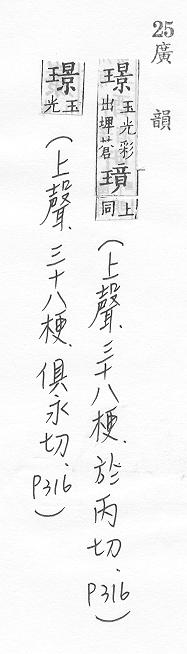 25 廣韻
璟玉光彩出埤蒼璄上同(上聲.三十八梗.於丙切.P316)
璟玉光(上聲.三十八梗.俱永切.P316)